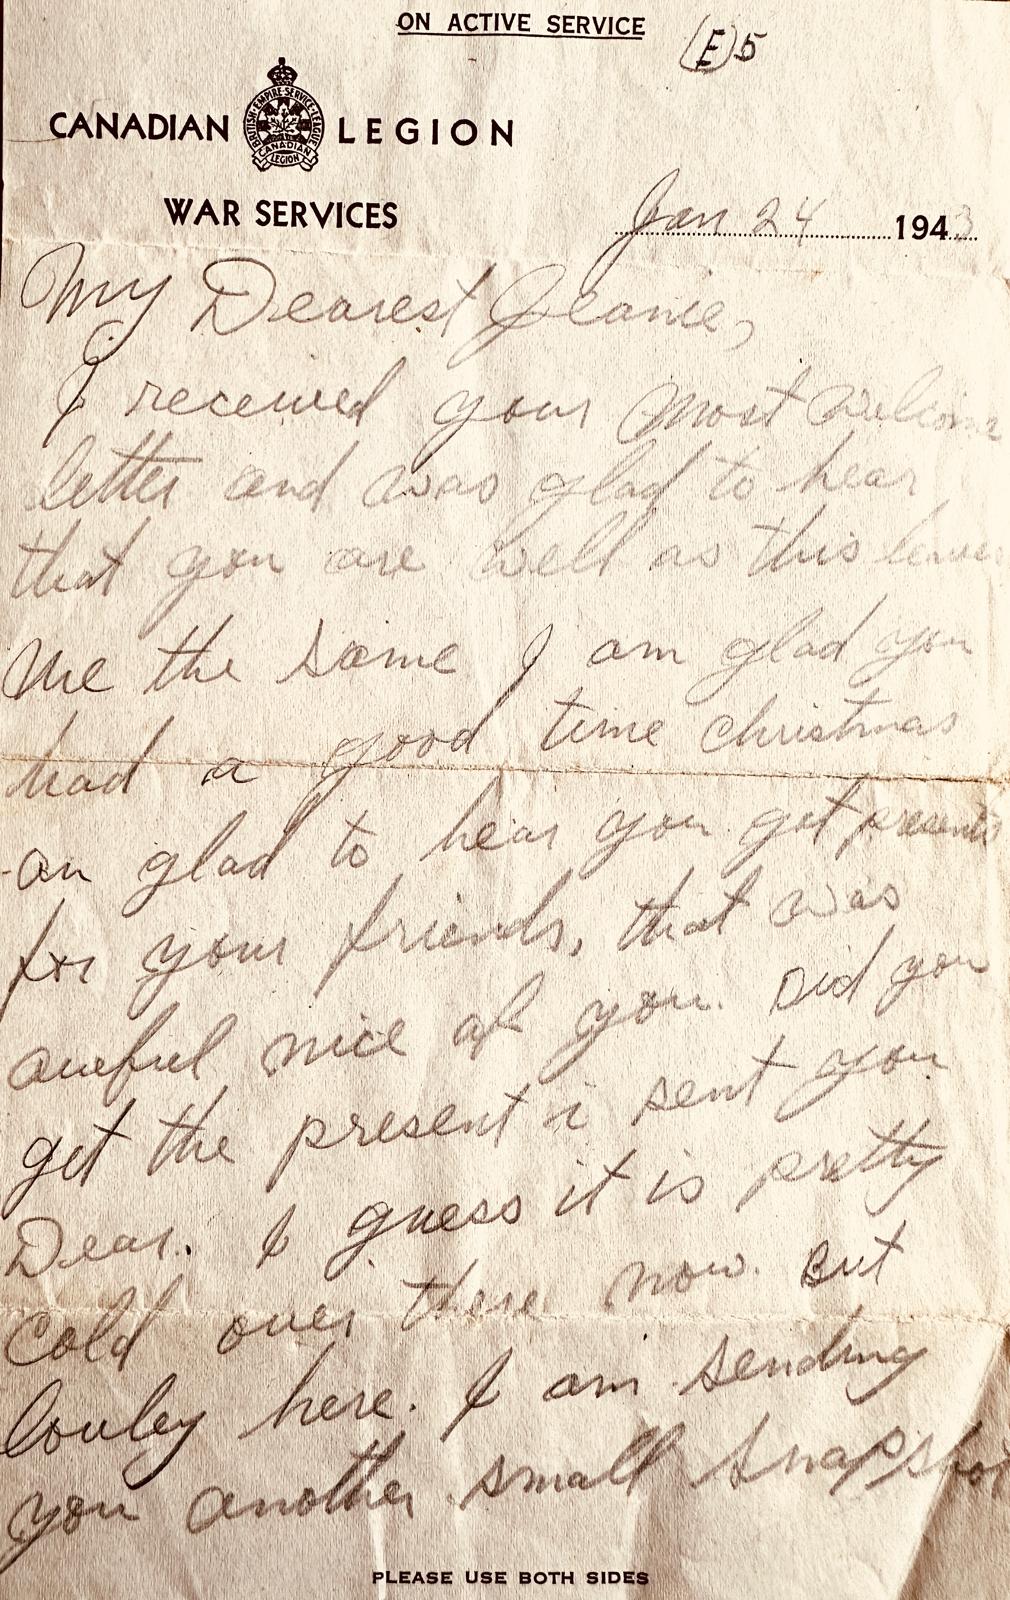 ON ACTIVE SERVICE
(E)5
CANADIAN LEGION
BRITISH·EMPIRE·SERVICE·LEAGUE
CANADIAN
LEGION
WAR SERVICES
Jan 24 1943
My Dearest Jeanie,
I received your most welcome
letter and was glad to hear
that you are well as this leaves
me the same I am glad you
had a good time christmas
an glad to hear you got presents
for your friends, that was
aueful nice of you. Did you
get the present i sent you
Dear. I guess it is pretty
cold over there now. But
louley here. I am sending
you another small snapshot
PLEASE USE BOTH SIDES